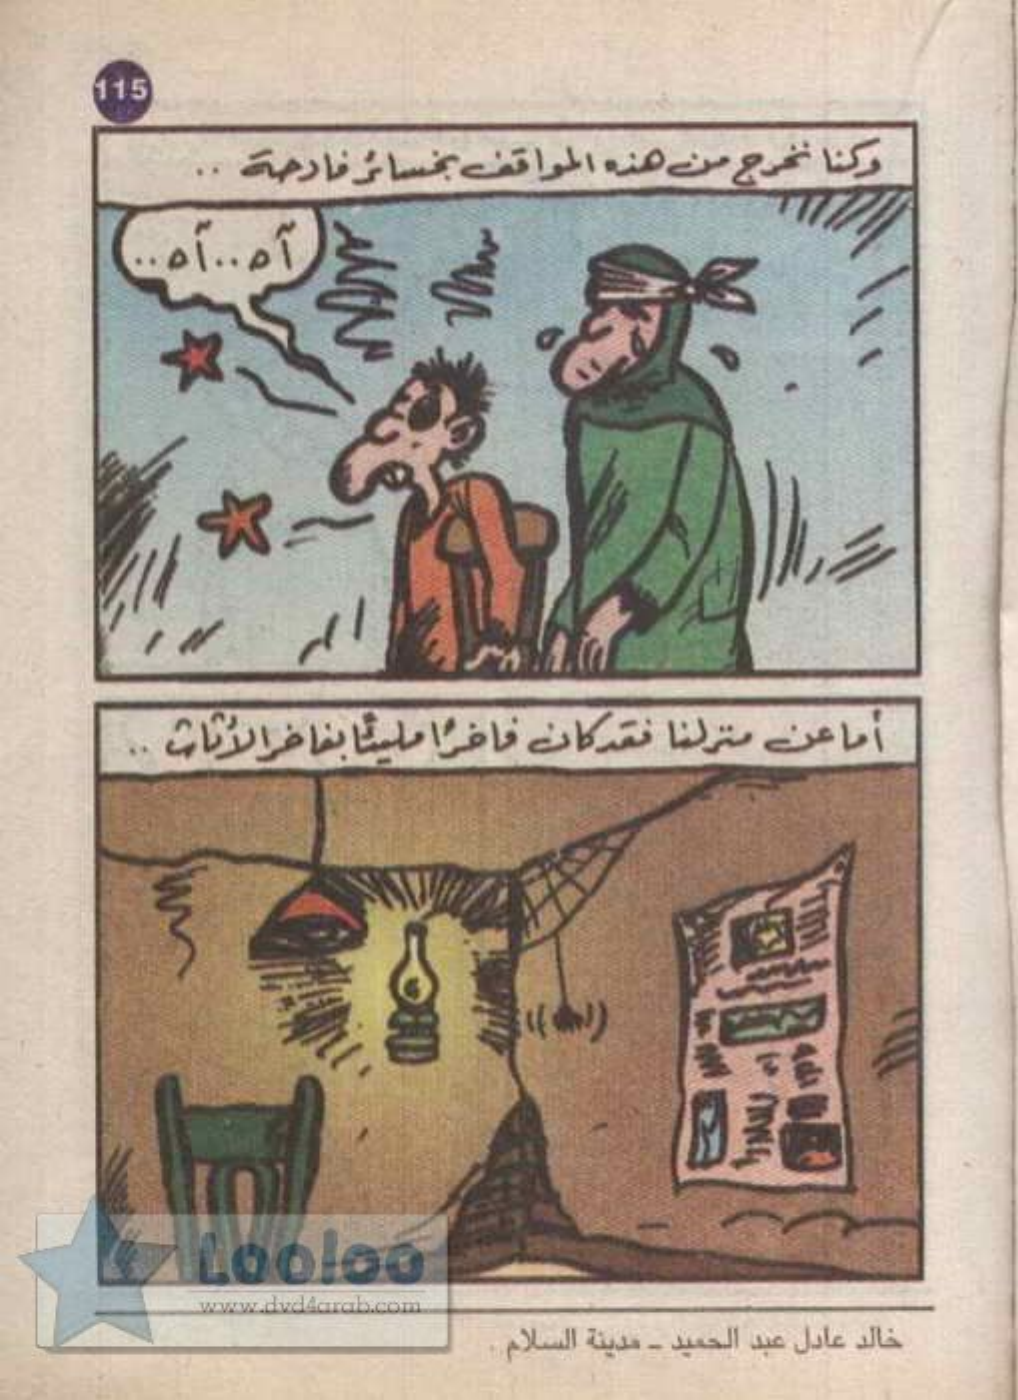 115
وكنا نخرج من هذه المواقف بخسائر فادحة ..
آه..آه..
أما عن منزلنا فقد كان فاخرًا مليئًا بفاخر الأثاث ..
Looloo
www.dvd4arab.com
خالد عادل عبد الحميد ـ مدينة السلام .